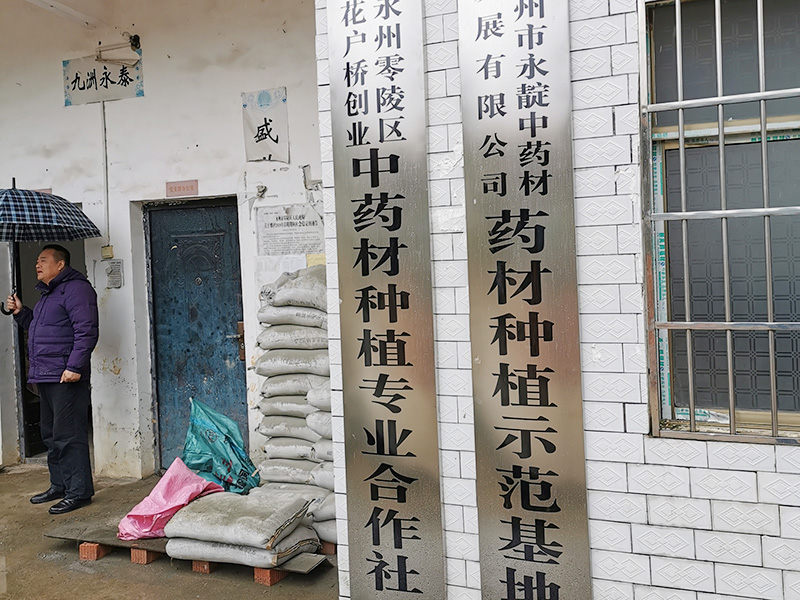 九洲永泰
盛
永州零陵区
花户桥创业
中药材种植专业合作社
州市永靛中药材
展有限公司
药材种植示范基地